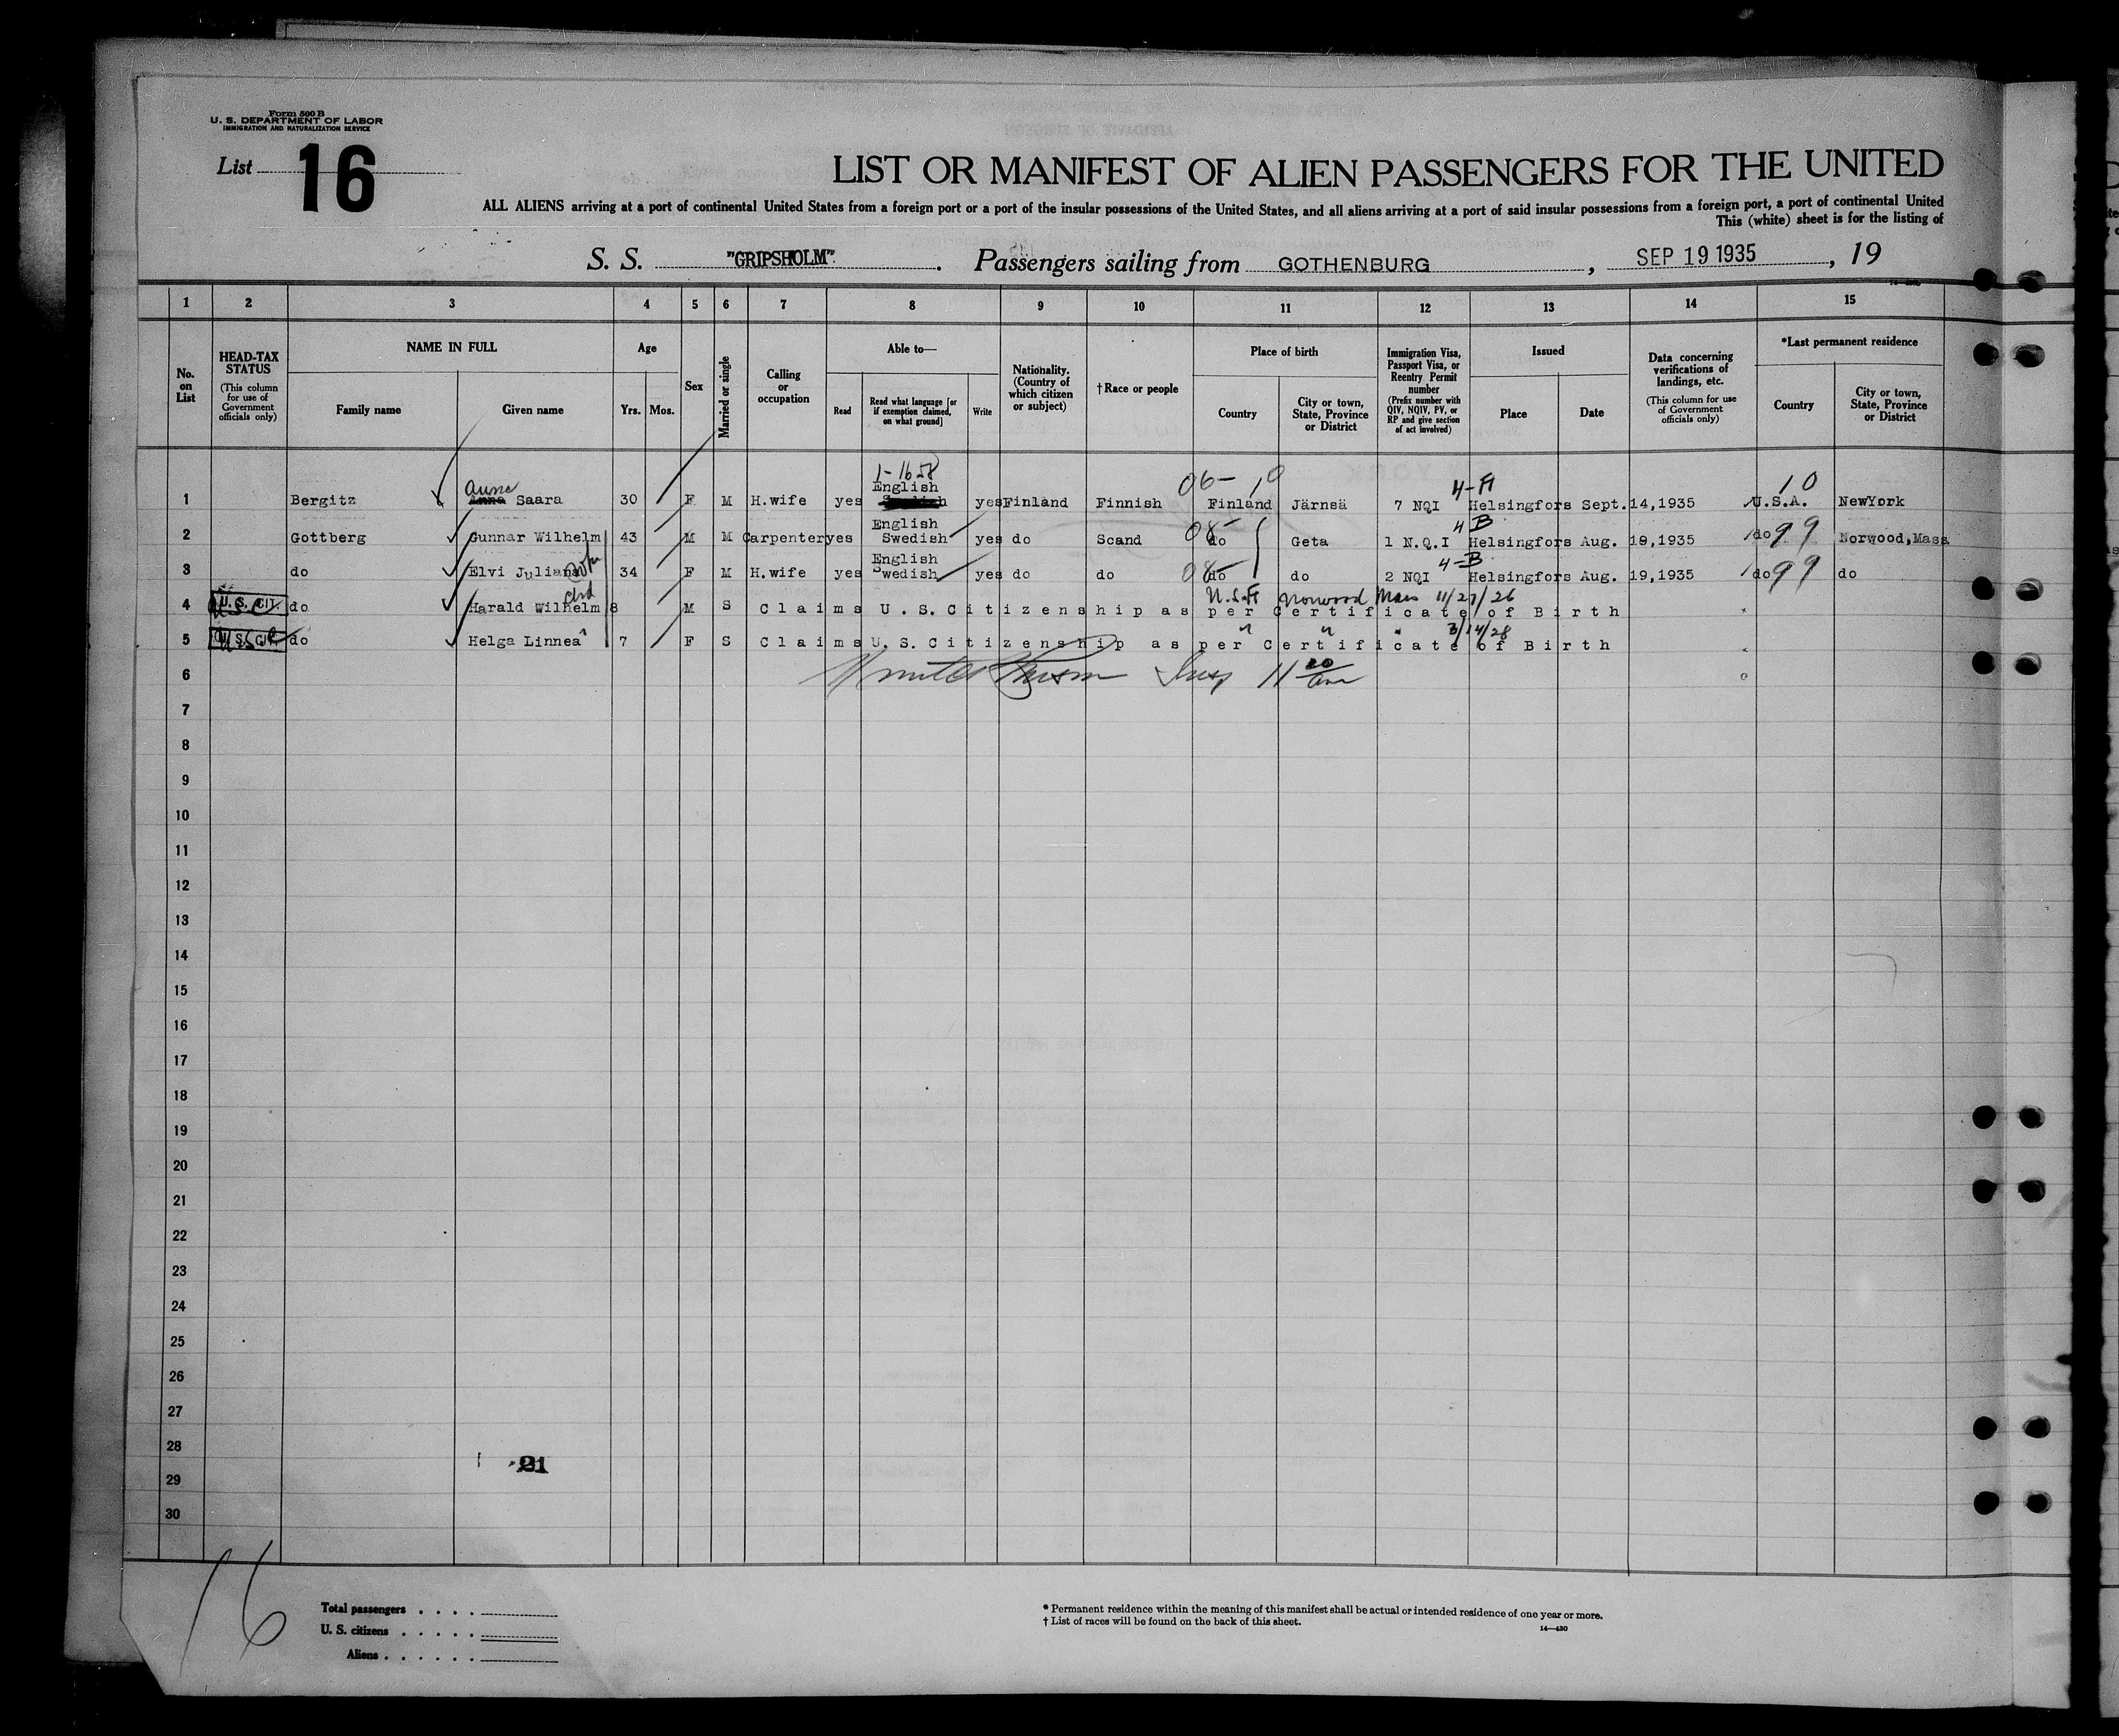 Form 500 B
U. S. DEPARTMENT OF LABOR
IMMIGRATION AND NATURALIZATION SERVICE
List 16
LIST OR MANIFEST OF ALIEN PASSENGERS FOR THE UNITED
ALL ALIENS arriving at a port of continental United States from a foreign port or a port of the insular possessions of the United States, and all aliens arriving at a port of said insular possessions from a foreign port, a port of continental United
This (white) sheet is for the listing of
S. S. "GRIPSHOLM". Passengers sailing from GOTHENBURG, SEP 19 1935, 19
1 2 3 4 5 6 7 8 9 10 11 12 13 14 15
No. on List
HEAD-TAX STATUS (This column for use of Government officials only)
NAME IN FULL
Family name
Given name
Age
Yrs.
Mos.
Sex
Married or single
Calling or occupation
Able to—
Read
Read what language [or if exemption claimed, on what ground]
Write
Nationality. (Country of which citizen or subject)
†Race or people
Place of birth
Country
City or town, State, Province or District
Immigration Visa, Passport Visa, or Reentry Permit number (Prefix number with QIV, NQIV, PV, or RP and give section of act involved)
Issued
Place
Date
Data concerning verifications of landings, etc. (This column for use of Government officials only)
*Last permanent residence
Country
City or town, State, Province or District
1-1658 06- 10 4-A 10
Aune English
1 Bergitz Anna Saara 30 F M H.wife yes yes Finland Finnish Finland Järnsä 7 NQI Helsingfors Sept.14,1935 U.S.A. NewYork
English 08- 4 B
2 Gottberg Gunnar Wilhelm 43 M M Carpenter yes Swedish yes do Scand do Geta 1 N.Q.I Helsingfors Aug. 19,1935 do 99 Norwood,Mass
wife English 08- 4-B
3 do Elvi Juliana 34 F M H.wife yes Swedish yes do do do do 2 NQI Helsingfors Aug. 19,1935 do 99 do
U.S. CIT. chd Norwood Mass 11/27/26
4 do Harald Wilhelm 8 M S Claims U.S.Citizenship as per Certificate of Birth
U.S. CIT. " " " 3/14/28
5 do Helga Linnea 7 F S Claims U.S.Citizenship as per Certificate of Birth
6 Insp 11 20
7
8
9
10
11
12
13
14
15
16
17
18
19
20
21
22
23
24
25
26
27
28
21
29
30
16
Total passengers
U. S. citizens
Aliens
* Permanent residence within the meaning of this manifest shall be actual or intended residence of one year or more.
† List of races will be found on the back of this sheet.
14—430